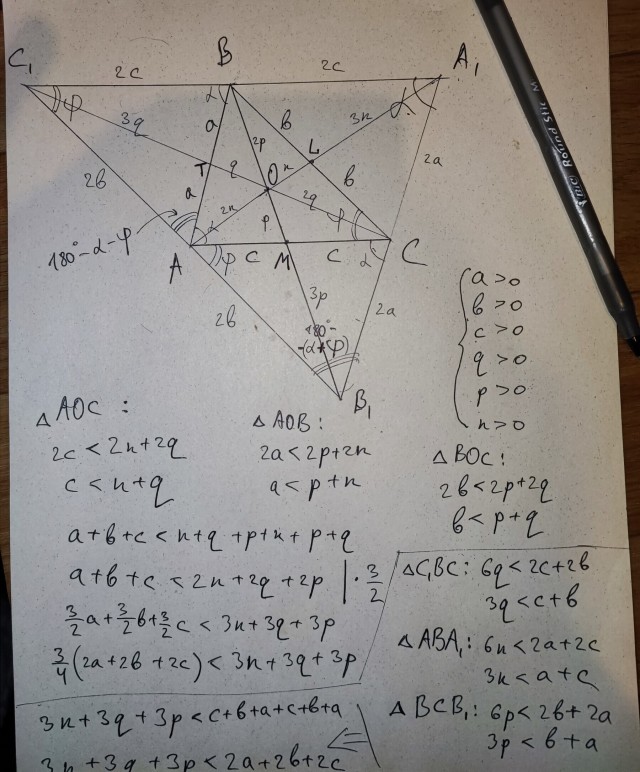 C₁ B A₁
2c 2c
φ α a 2p в 3n α
3q
T q O n L
2в a в 2a
2n 2q φ
180°-α-φ α p
A φ c M c α C
3p
2в 2a
180°-
-(α+φ)
B₁
a>0
в>0
c>0
q>0
p>0
n>0
△AOC:
2c<2n+2q
c<n+q
△AOB:
2a<2p+2n
a<p+n
△BOC:
2в<2p+2q
в<p+q
a+в+c<n+q+p+n+p+q
a+в+c<2n+2q+2p |·3/2
3/2a+3/2в+3/2c<3n+3q+3p
3/4(2a+2в+2c)<3n+3q+3p
△C₁BC: 6q<2c+2в
3q<c+в
△ABA₁: 6n<2a+2c
3n<a+c
△BCB₁: 6p<2в+2a
3p<в+a
3n+3q+3p<c+в+a+c+в+a
3n+3q+3p<2a+2в+2c
BIC Round Stic M